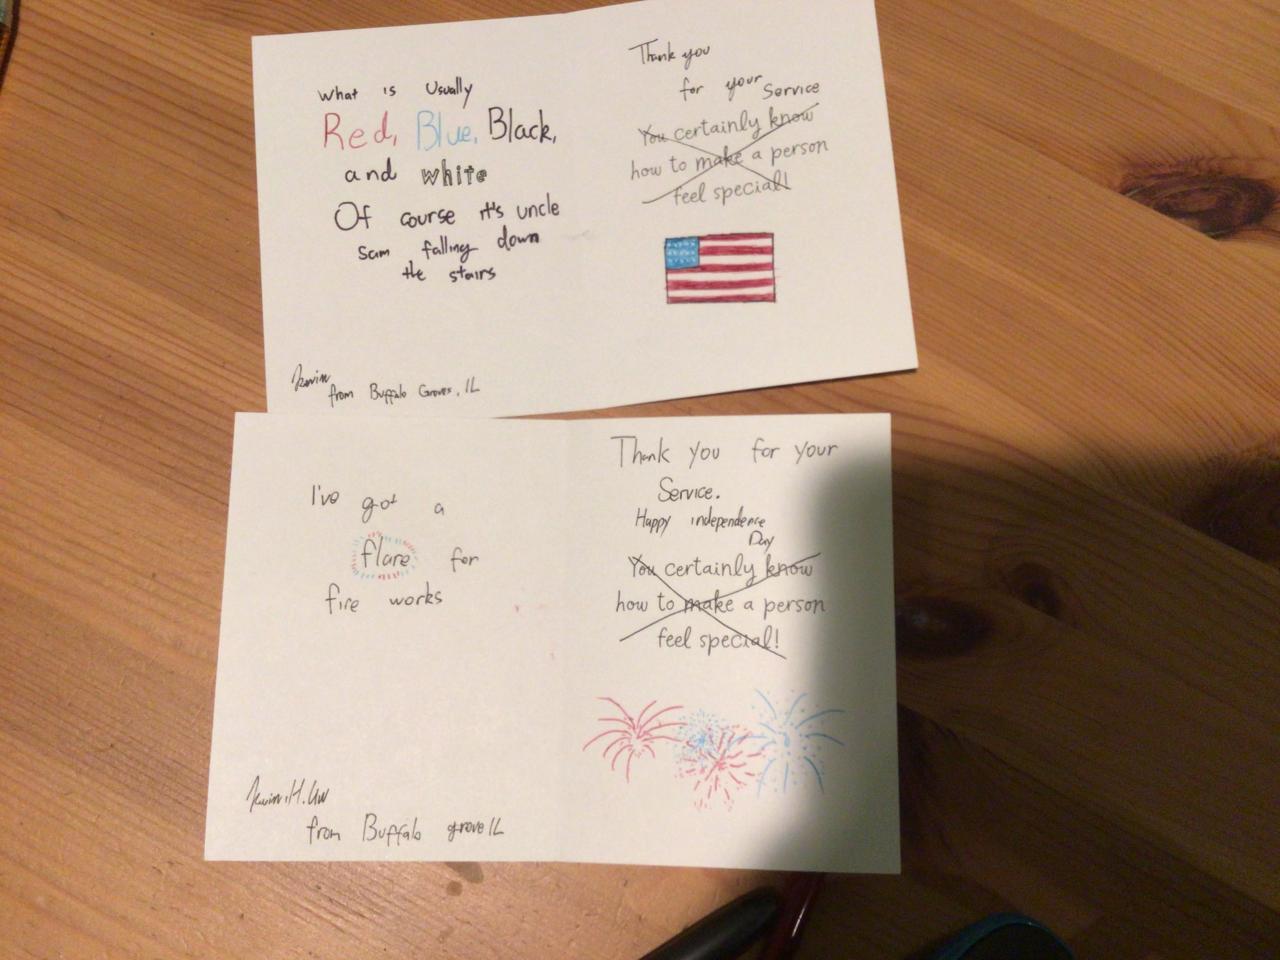 What is Usually
Red, Blue, Black,
and white
Of course it's uncle
Sam falling down
the stairs
Kevin
from Buffalo Groves, IL
Thank you
for your Service
You certainly know
how to make a person
feel special!
I've got a
flare for
fire works
Kevin.H.
from Buffalo grove IL
Thank you for your
Service.
Happy independence
Day
You certainly know
how to make a person
feel special!